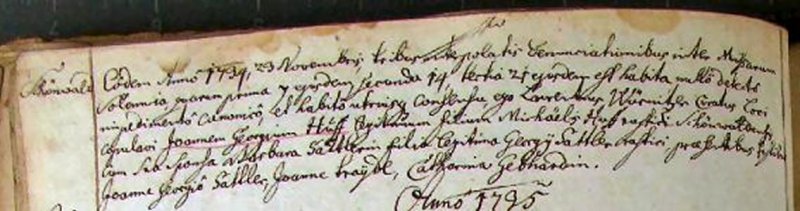 Schönwalt
Eodem Anno 1734, 23 Novembris, tribus interpolatis denunciationibus inter Missarum
solemnia, quarum prima 7 ejusdem secunda 14, tertia 21 ejusdem est habita, nullo detecto
impedimento canonico, et habito utriusque consensu, ego Laurentius Curatus Loci
copulavi Joannem Georgium Hüff legitimum filium Michaelis Hüff rustici
cum sua Sponsa Barbara Sattlerin filia legitima Georgij Sattler rustici, praesentibus testibus
Joanne Georgio Sattler, Joanne Catharina Gebhardin.
Anno 1735